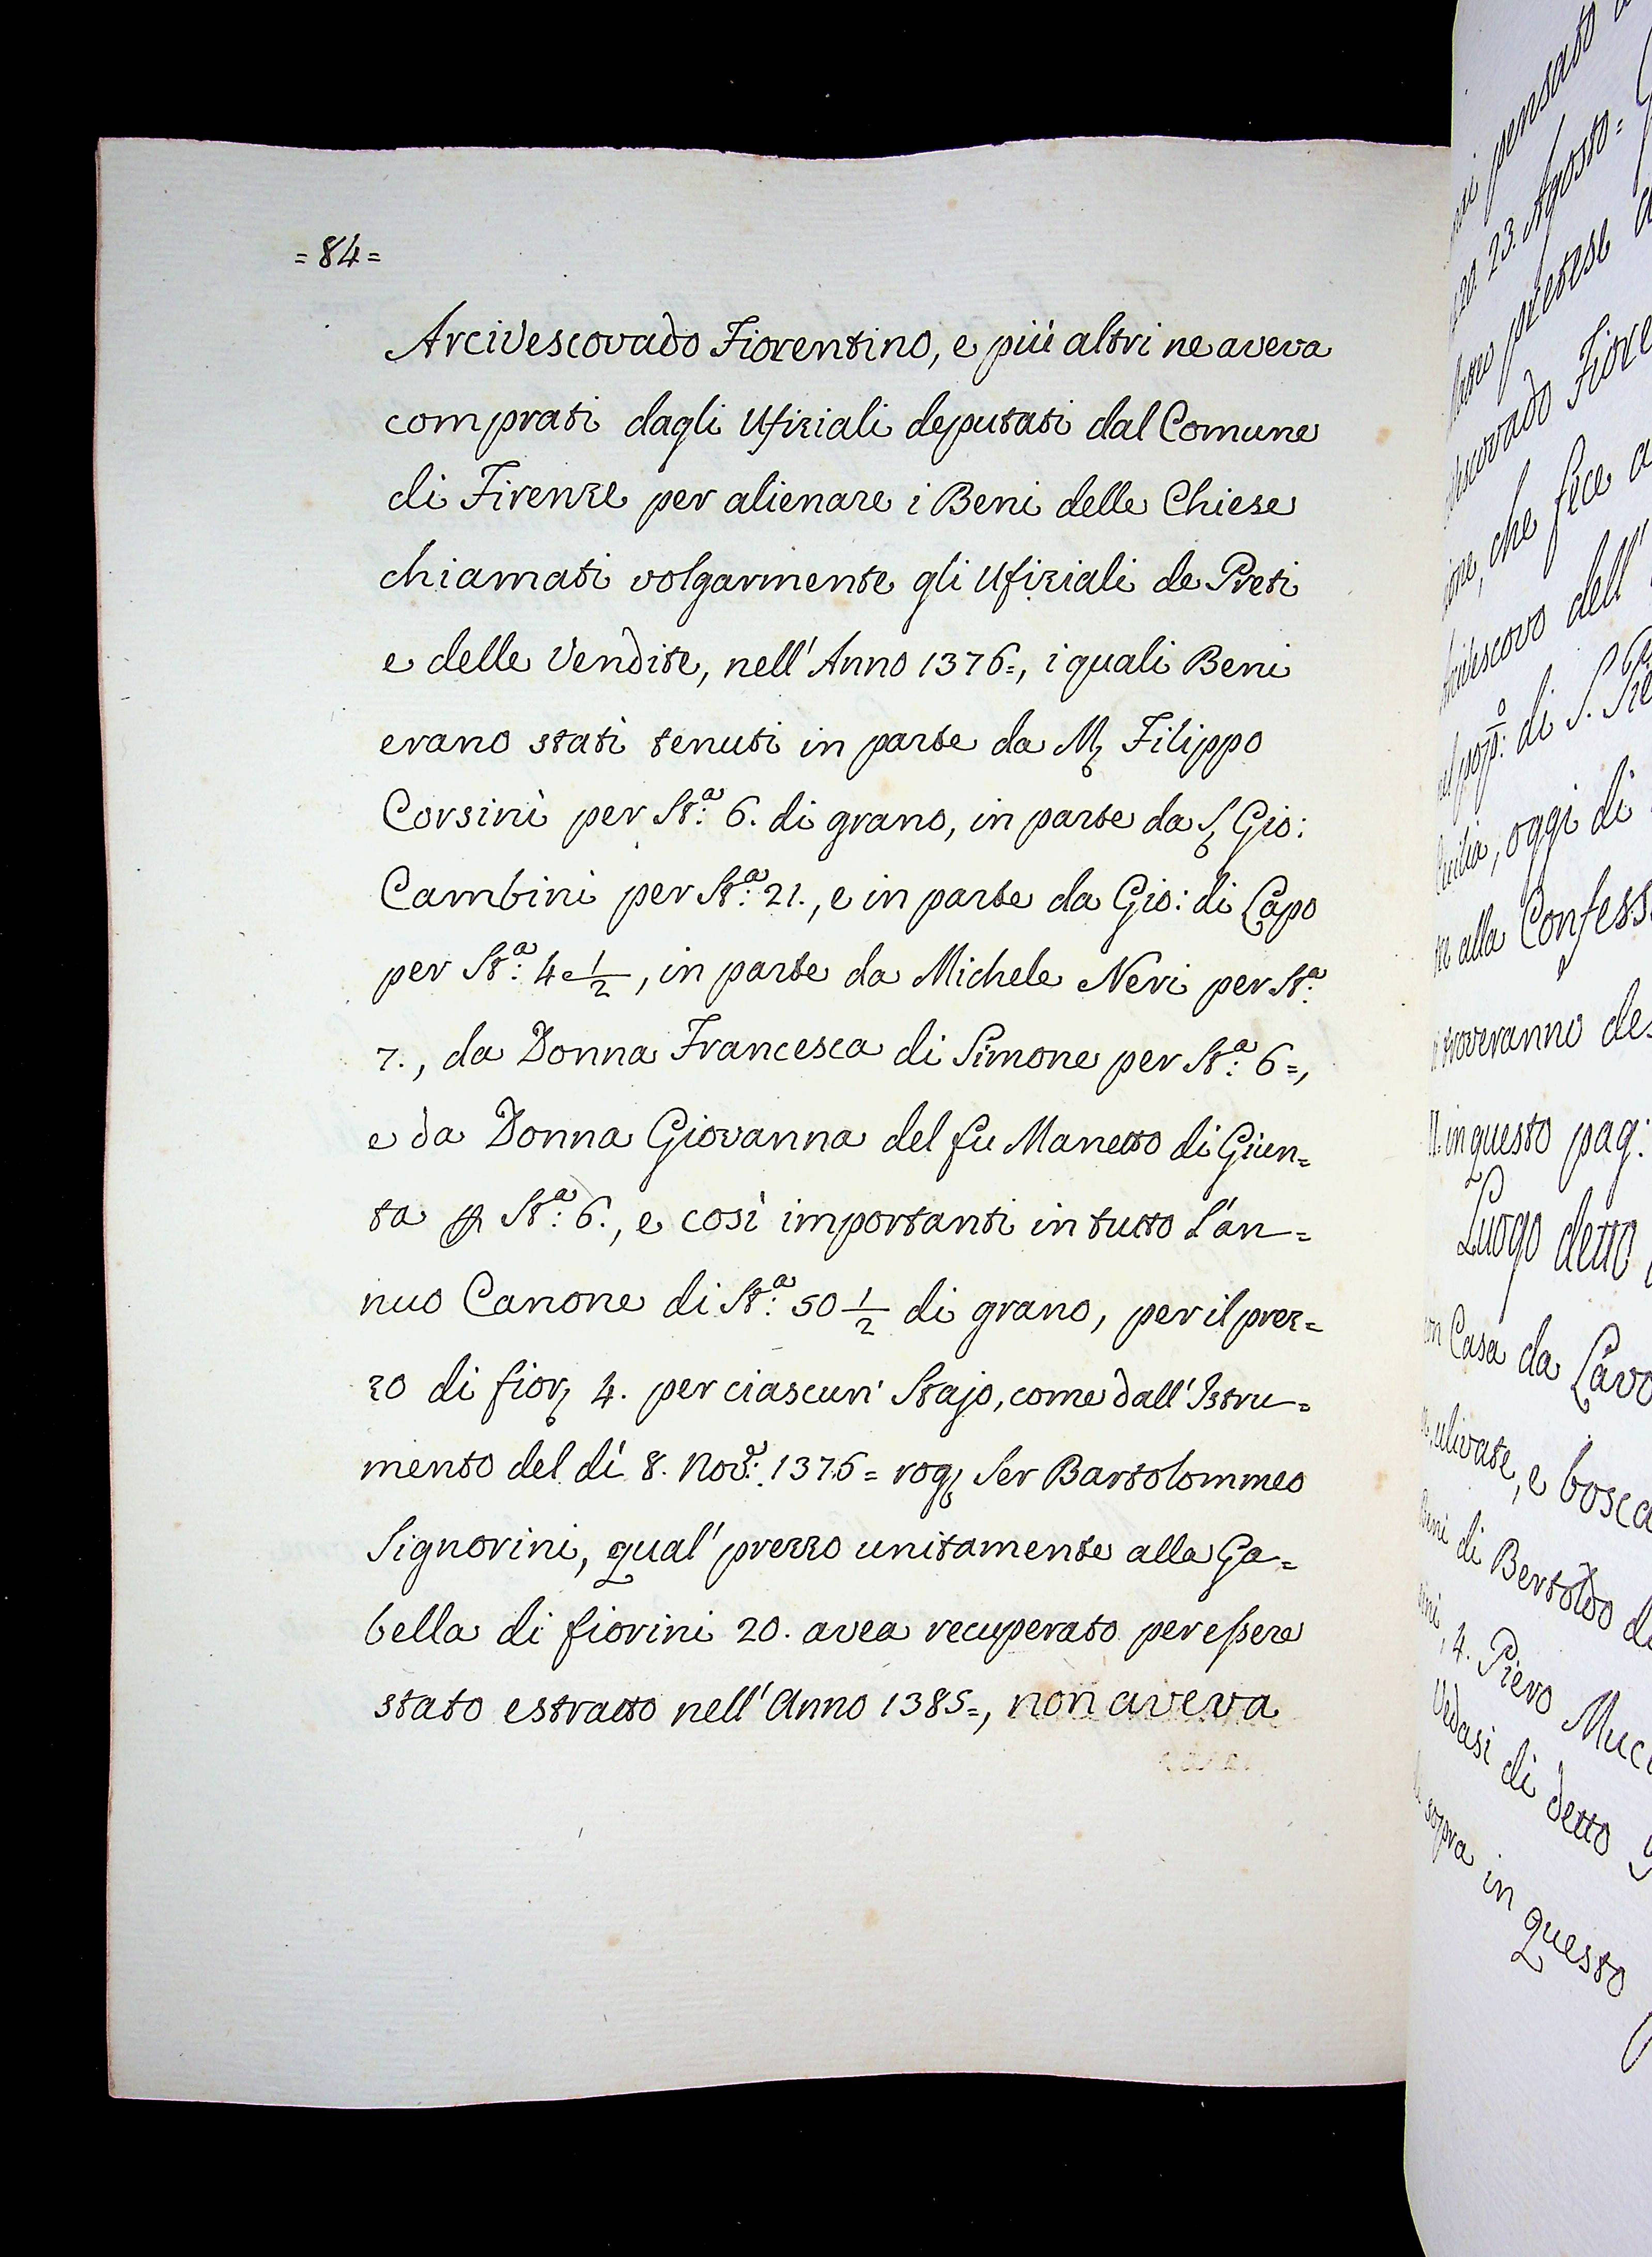 =84=
Arcivescovado Fiorentino, e più altri ne aveva
comprati dagli Ufiziali deputati dal Comune
di Firenze per alienare i Beni delle Chiese
chiamati volgarmente gli Ufiziali de Preti
e delle Vendite, nell'Anno 1376=, i quali Beni
erano stati tenuti in parte da M. Filippo
Corsini per St.ª 6. di grano, in parte da S. Gio:
Cambini per St.ª 21., e in parte da Gio: di Lapo
per St.ª 4 e 1/2, in parte da Michele Neri per St.ª
7., da Donna Francesca di Simone per St.ª 6=,
e da Donna Giovanna del fu Manetto di Giun=
ta p St.ª 6., e così importanti in tutto l'an=
nuo Canone di St.ª 50 1/2 di grano, per il prez=
zo di fior. 4. per ciascun' Stajo, come dall'Istru=
mento del dì 8. Nov.e 1376= rog. Ser Bartolommeo
Signorini, qual' prezzo unitamente alla Ga=
bella di fiorini 20. avea recuperato per essere
stato estratto nell'Anno 1385=, non aveva
pensato
23. Agosto=
pretese
Fiore
che fece a
dell'
di S. Pie
oggi di
alla Confess
troveranno des
in questo pag:
Luogo detto
Casa da Lavo
ulivate, e bosca
di Bertoldo de
4. Piero Mucc
Vedasi di detto
sopra in questo